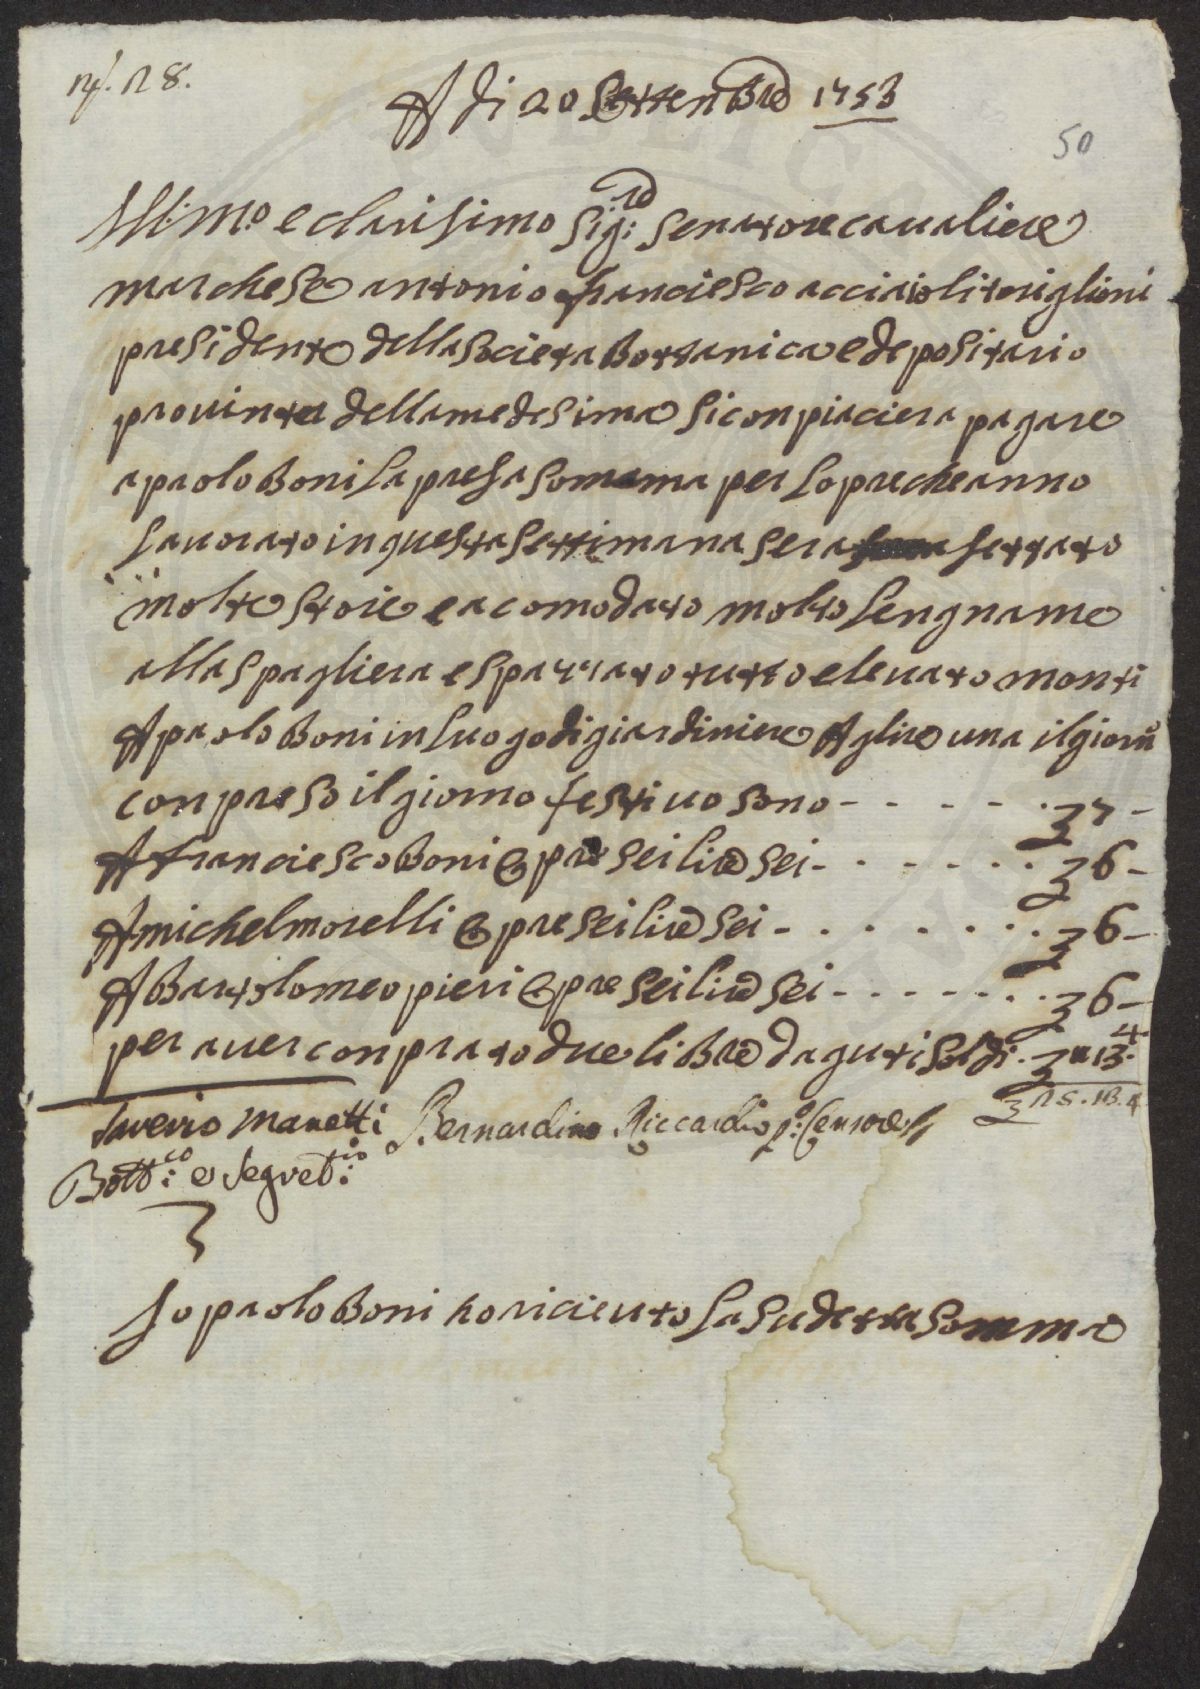 N.° 28.
A di 20 Settenbre 1753
50
Ill:mo e clarisimo Sig:re Senatore Cavaliere
marchese antonio franciesco acciaioli toriglioni
presidente della Societa Bottanica e depositario
provinte della medesima Si conpiaciera pagare
a paolo Boni la presa Somma per lopre che anno
lavorato in questa Settimana Sera fattato
molte Stoie e acomodato molto lengname
alla Spagliera e spazzato tutto e levato monti
A paolo Boni in luogo di giardiniere A glire una il giorno
conpreso il giorno festivo Sono - - - - - 7 -
A franciesco Boni opre Sei lire Sei - - - - - 6 -
A michel morelli opre Sei lire Sei - - - - - 6 -
A Bartolomeo pieri opre Sei lire Sei - - - - - 6 -
per aver conprato due libre daguti Soldi - " 13. 4
Saverio Manetti Bernardino Riccardi p:o Censore 25. 13. 4
Bott:co e Segret:rio
Io paolo Boni ho riceuto la Sudetta Somma